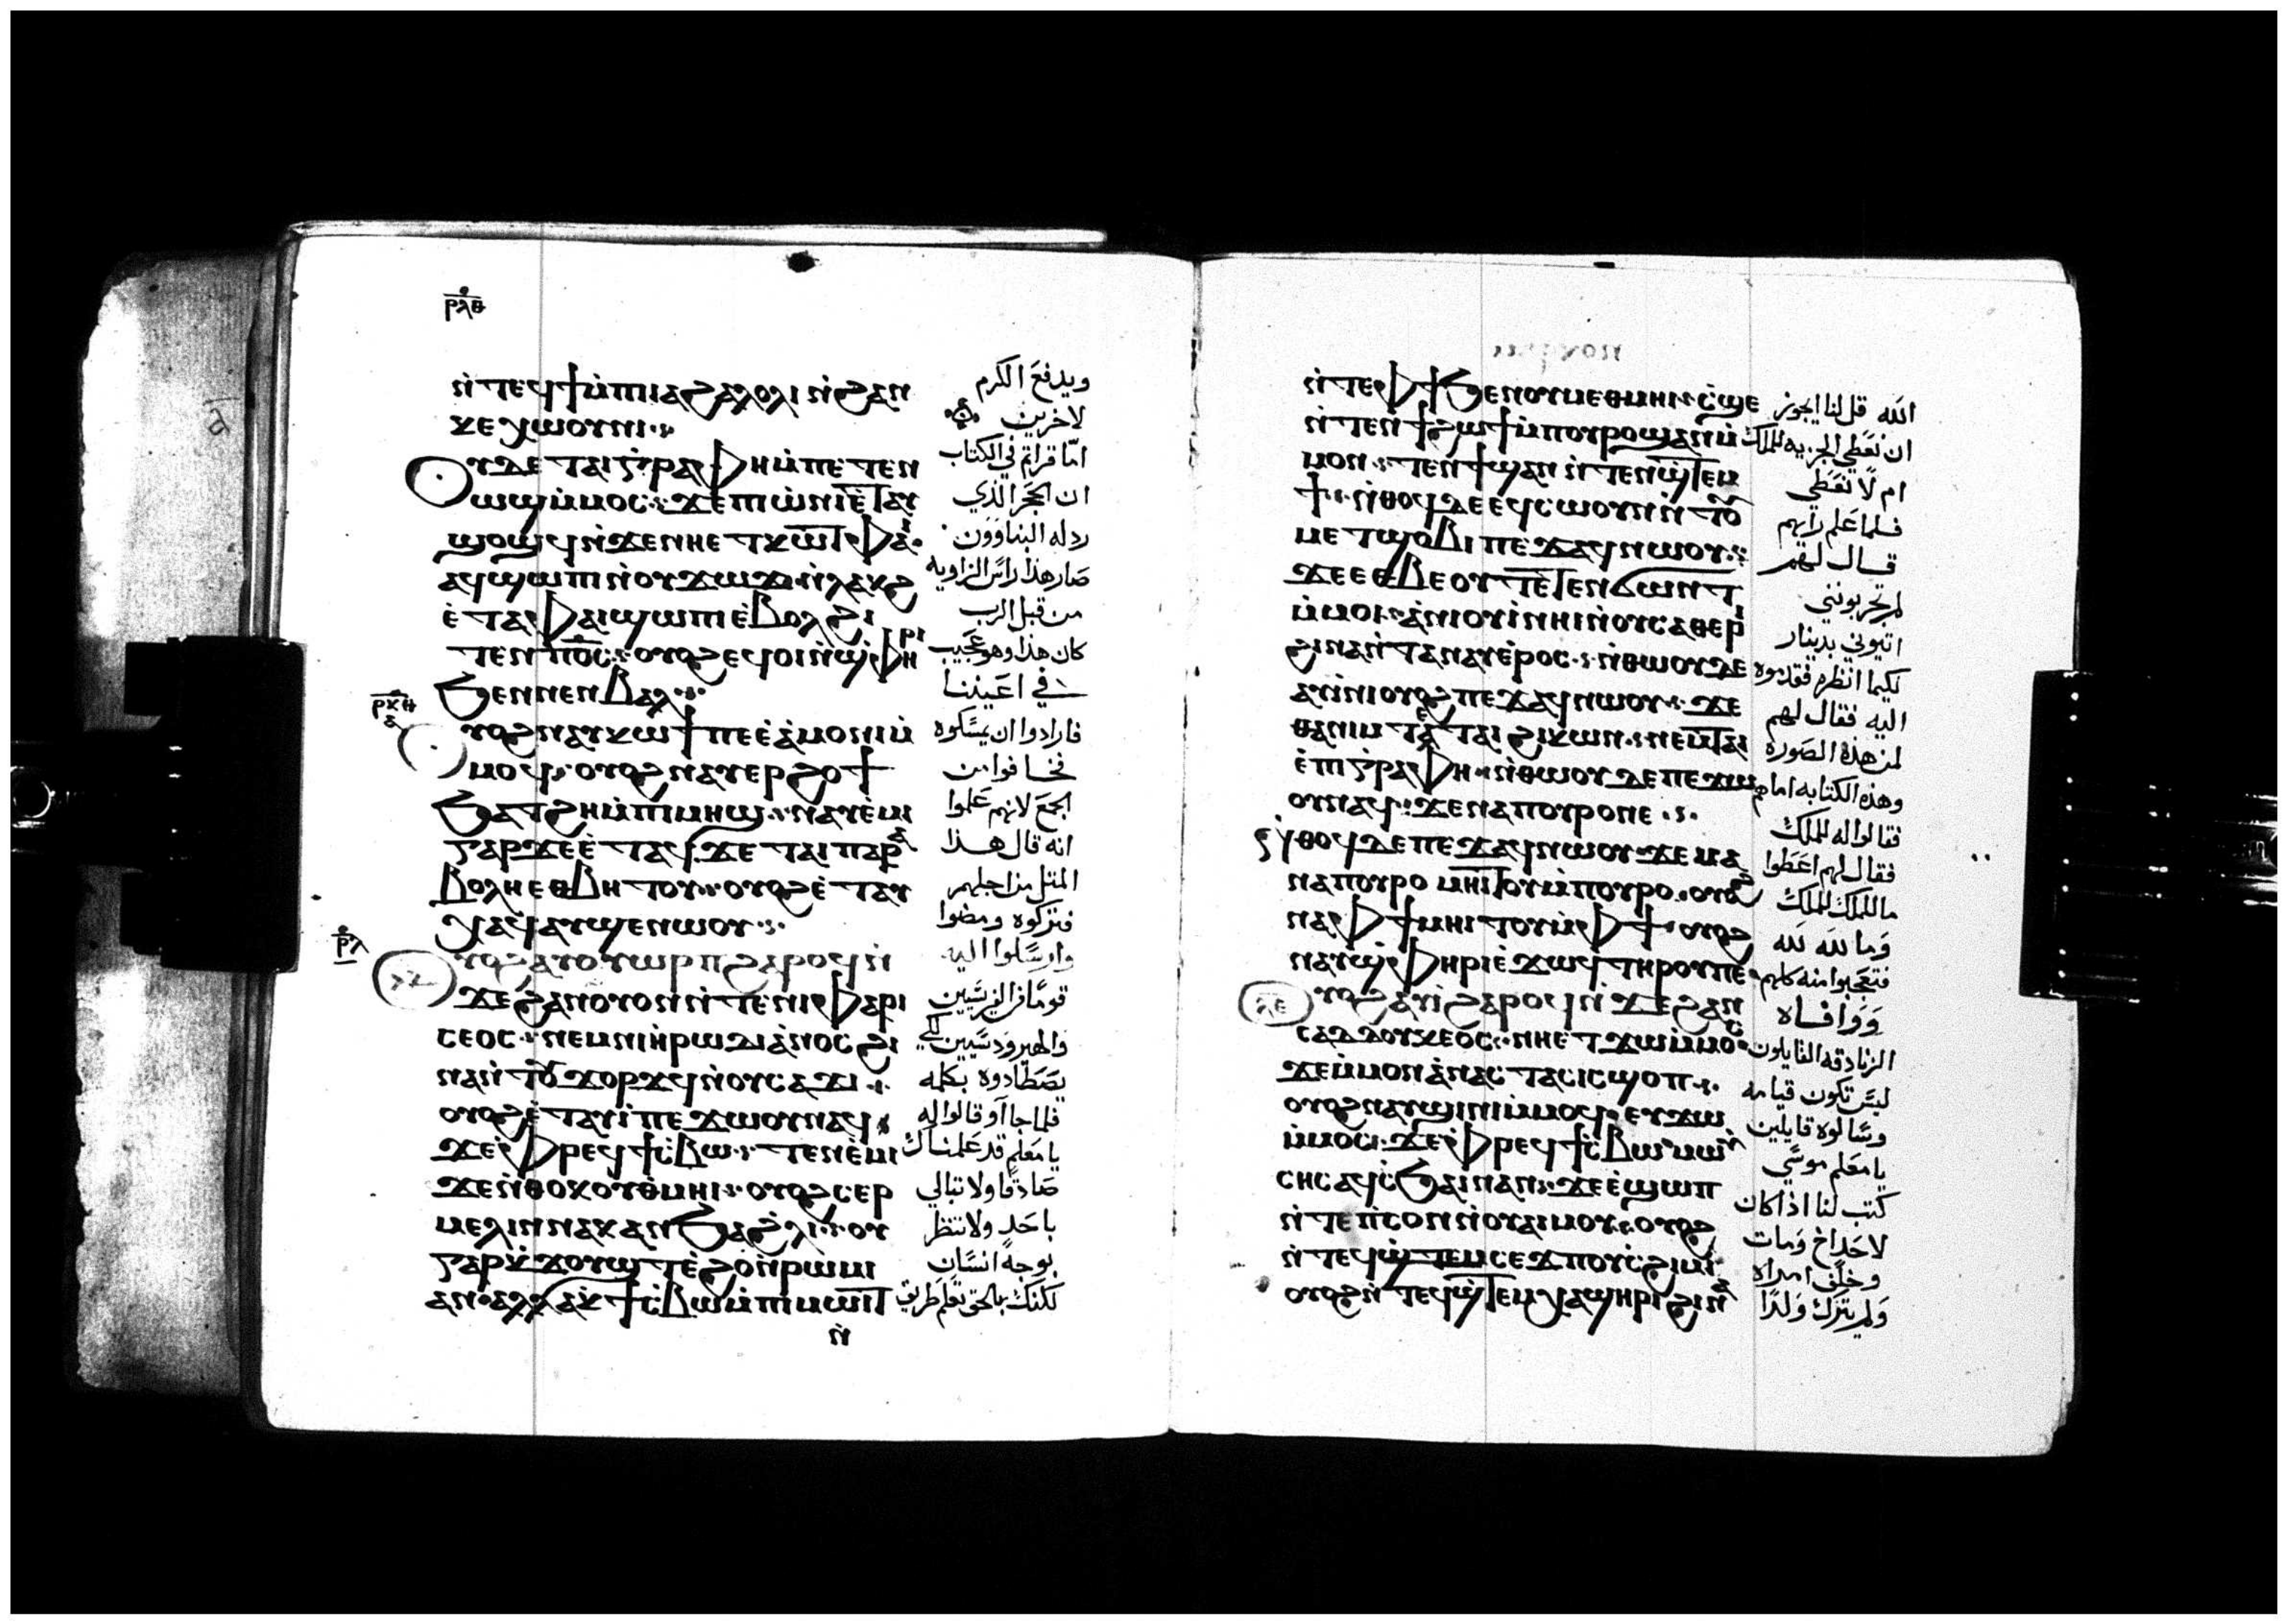 ⲣⲗⲑ
ⲛ̀ⲧⲉϥϯⲙ̀ⲡⲓⲁϩⲁⲗⲟⲗⲓ ⲛ̀ϩⲁⲛ
ⲭⲉⲭⲱⲟⲩⲛⲓ
ⲟⲩⲇⲉ ⲧⲁⲓⲅⲣⲁⲫⲏ ⲙ̀ⲡⲉⲧⲉⲛ
ⲱϣ ⲙ̀ⲙⲟⲥ ϫⲉ ⲡⲓⲱ̀ⲛⲓ ⲉ̀ⲧⲁⲩ
ϣⲟϣϥ ⲛ̀ϫⲉⲛⲏⲉⲧⲕⲱⲧ ⲫⲁⲓ
ⲁϥϣⲱⲡⲓ ⲛ̀ⲟⲩϫⲱϫ ⲛ̀ⲗⲁⲕϩ
ⲉ̀ⲧⲁⲫⲁⲓϣⲱⲡⲓ ⲉ̀ⲃⲟⲗϩⲓ
ⲧⲉⲛ ⲡⲟ̅ⲥ̅ ⲟⲩⲟϩ ϥⲟⲓ ⲛ̀ϣ̀ⲫⲏⲣⲓ
ϧⲉⲛⲛⲉⲛⲃⲁⲗ
ⲟⲩⲟϩ ⲛⲁⲩⲕⲱϯ ⲡⲉ ⲉ̀ⲁ̀ⲙⲟⲛⲓ ⲙ̀
ⲙⲟϥ ⲟⲩⲟϩ ⲛⲁⲩⲉⲣϩⲟϯ
ϧⲁⲧϩⲏ ⲙ̀ⲡⲓⲙⲏϣ ⲛⲁⲩⲉ̀ⲙⲓ
ⲅⲁⲣ ϫⲉ ⲉ̀ⲧⲁϥϫⲉ ⲧⲁⲓⲡⲁⲣⲁ
ⲃⲟⲗⲏ ⲉⲑⲃⲏⲧⲟⲩ ⲟⲩⲟϩ ⲉ̀ⲧⲁⲩ
ⲭⲁϥ ⲁⲩϣⲉⲛⲱⲟⲩ
ⲟⲩⲟϩ ⲁⲩⲟⲩⲱⲣⲡ ϩⲁⲣⲟϥ ⲛ̀
ϫⲉϩⲁⲛⲟⲩⲟⲛ ⲛ̀ⲧⲉⲛⲓⲫⲁⲣⲓ
ⲥⲉⲟⲥ ⲛⲉⲙⲛⲓⲏ̀ⲣⲱⲇⲓⲁ̀ⲛⲟⲥ ϩⲓ
ⲛⲁ ⲛ̀ⲧⲟⲩϫⲟⲣϫϥ ⲛ̀ⲟⲩⲥⲁϫⲓ
ⲟⲩⲟϩ ⲉ̀ⲧⲁⲩⲓ̀ ⲡⲉϫⲱⲟⲩ ⲛⲁϥ
ϫⲉ ⲫⲣⲉϥϯⲥ̀ⲃⲱ ⲧⲉⲛⲉ̀ⲙⲓ
ϫⲉ ⲛ̀ⲑⲟⲕ ⲟⲩⲑ̀ⲙⲏⲓ ⲟⲩⲟϩ ⲥⲉⲣ
ⲙⲉⲗⲓⲛ ⲛⲁⲕ ⲁⲛ ϧⲁϩ̀ⲗⲓ ⲟⲩ
ⲅⲁⲣ ⲭ̀ϫⲟⲩϣⲧ ⲉ̀ϩⲟ ⲛ̀ⲣⲱⲙⲓ
ⲁⲛ ⲁⲗⲗⲁ ⲕ̀ϯⲥ̀ⲃⲱ ⲙ̀ⲡⲓⲙⲱⲓⲧ
ⲛ̀
ويدفع الكرم
لاخرين
امّا قراتم في الكتاب
ان الحجر الذي
رذله البناوون
صار هذا راس الزاويه
من قبل الرب
كان هذا وهو عجيب
في اعيننا
فارادوا ان يمسكوه
فخافوا من
الجمع لانهم علموا
انه قال هذا
المثل من اجلهم
فتركوه ومضوا
وارسلوا اليه
قومًا من الفريسيين
والهيرودسيين لكي
يصطادوه بكلمه
فلما جاآو قالوا له
يا معلم قد علمنا انك
صادقا ولا تبالي
باحد ولا تنظر
بوجه انسان
لكنك بالحق تعلم طريق
ⲛ̀ⲧⲉⲫϯ ϧⲉⲛⲟⲩⲙⲉⲑⲙⲏⲓ ⲥ̀ϣⲉ
ⲛ̀ⲧⲉⲛϯϩⲱϯ ⲙ̀ⲡⲟⲩⲣⲟ ϣⲁⲛ ⲙ̀
ⲙⲟⲛ ⲧⲉⲛϯ ϣⲁⲛ ⲛ̀ⲧⲉⲛϣⲧⲉⲙ
ϯ ⲛ̀ⲑⲟϥ ⲇⲉ ⲉϥⲥⲱⲟⲩⲛ ⲛ̀ⲧⲟⲩ
ⲙⲉⲧϣⲟⲃⲓ ⲡⲉϫⲁϥ ⲛⲱⲟⲩ
ϫⲉ ⲉⲑⲃⲉⲟⲩ ⲧⲉⲧⲉⲛϭⲱⲛⲧ
ⲙ̀ⲙⲟⲓ ⲁ̀ⲛⲓⲟⲩⲓ̀ ⲛⲏⲓ ⲛ̀ⲟⲩⲥⲁⲑⲉⲣⲓ
ϩⲓⲛⲁ ⲛ̀ⲧⲁⲛⲁⲩ ⲉ̀ⲣⲟⲥ ⲛ̀ⲑⲱⲟⲩ ⲇⲉ
ⲁⲩⲓ̀ⲛⲓ ⲟⲩⲟϩ ⲡⲉϫⲁϥ ⲛⲱⲟⲩ ϫⲉ
ⲑⲁⲛⲓⲙ ⲧⲉ ⲧⲁⲓϩⲓⲕⲱⲛ ⲛⲉⲙⲧⲁⲓ
ⲉ̀ⲡⲓⲅⲣⲁⲫⲏ ⲛ̀ⲑⲱⲟⲩ ⲇⲉ ⲡⲉϫⲱ
ⲟⲩ ⲛⲁϥ ϫⲉ ⲛⲁⲡⲟⲩⲣⲟ ⲛⲉ
ⲛ̀ⲑⲟϥ ⲇⲉ ⲡⲉϫⲁϥ ⲛⲱⲟⲩ ϫⲉ ⲙⲁ
ⲛⲁⲡⲟⲩⲣⲟ ⲙⲏⲓⲧⲟⲩ ⲙ̀ⲡⲟⲩⲣⲟ ⲟⲩⲟϩ
ⲛⲁⲫϯ ⲙⲏⲓⲧⲟⲩ ⲙ̀ⲫϯ ⲟⲩⲟϩ
ⲛⲁⲩϣ̀ⲫⲏⲣⲓ ⲉ̀ϫⲱϥ ⲧⲏⲣⲟⲩ ⲡⲉ
ⲟⲩⲟϩ ⲁⲩⲓ̀ ϩⲁⲣⲟϥ ⲛ̀ϫⲉϩⲁⲛ
ⲥⲁⲇⲇⲟⲩⲕⲉⲟⲥ ⲛⲏⲉⲧϫⲱ ⲙ̀ⲙⲟⲥ
ϫⲉ ⲙ̀ⲙⲟⲛ ⲁ̀ⲛⲁⲥⲧⲁⲥⲓⲥ ϣⲟⲡ
ⲟⲩⲟϩ ⲛⲁⲩϣⲓⲛⲓ ⲙ̀ⲙⲟϥ ⲉⲩϫⲱ
ⲙ̀ⲙⲟⲥ ϫⲉ ⲫⲣⲉϥϯⲥ̀ⲃⲱ ⲙⲱⲩ̀
ⲥⲏⲥ ⲁϥⲥ̀ϧⲁⲓ ⲛⲁⲛ ϫⲉ ⲉ̀ϣⲱⲡ
ⲛ̀ⲧⲉⲡ̀ⲥⲟⲛ ⲛ̀ⲟⲩⲁⲓ ⲙⲟⲩ ⲟⲩⲟϩ
ⲛ̀ⲧⲉϥⲥⲉϫⲡ ⲟⲩⲥ̀ϩⲓⲙⲓ
ⲟⲩⲟϩ ⲛ̀ⲧⲉϥϣ̀ⲧⲉⲙⲭⲁϣⲏⲣⲓ ϩⲓⲛⲁ
الله قل لنا ايجوز
ان نعطي الجزيه للملك
ام لا نعطي
فلما علم رايهم
قال لهم
لم تجربونني
اتيوني بدينار
لكيما انظره فقدموه
اليه فقال لهم
لمن هذه الصوره
وهذه الكتابه اما هم
فقالوا له للملك
فقال لهم اعطوا
ما للملك للملك
وما لله لله
فتعجبوا منه كلهم
ووافاه
الزنادقه القايلون
ليس تكون قيامه
وسالوه قايلين
يا معلم موسي
كتب لنا اذا كان
لاحد اخ ومات
وخلف امراه
ولم يترك ولدًا